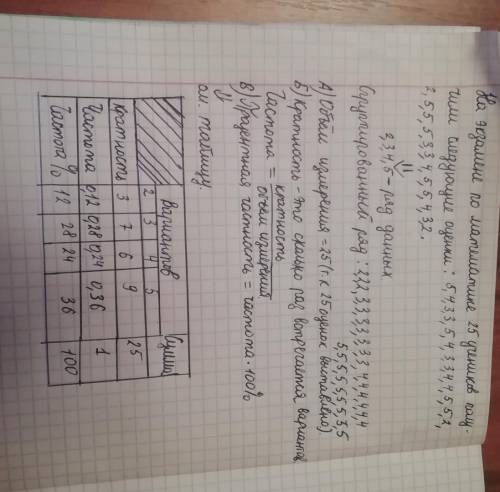 На экзамене по математике 25 учеников полу-
чили следующие оценки: 5,4,3,3,5,4,3,3,4,4,5,5,2,
2,5,5,5,3,3,4,5,5,4,3,2.
2,3,4,5 - ряд данных
Сгруппированный ряд: 2,2,2,3,3,3,3,3,3,3,4,4,4,4,4,4
5,5,5,5,5,5,5,5,5
А) Объём измерения = 25 (т.к 25 оценок выставлено)
Б) Кратность - это сколько раз встречается варианта
Частота = кратность
объём измерения
В) Процентная частность = частота · 100%
см. таблицу.
Варианты Сумма
2 3 4 5
кратность 3 7 6 9 25
Частота 0,12 0,28 0,24 0,36 1
Частота % 12 28 24 36 100